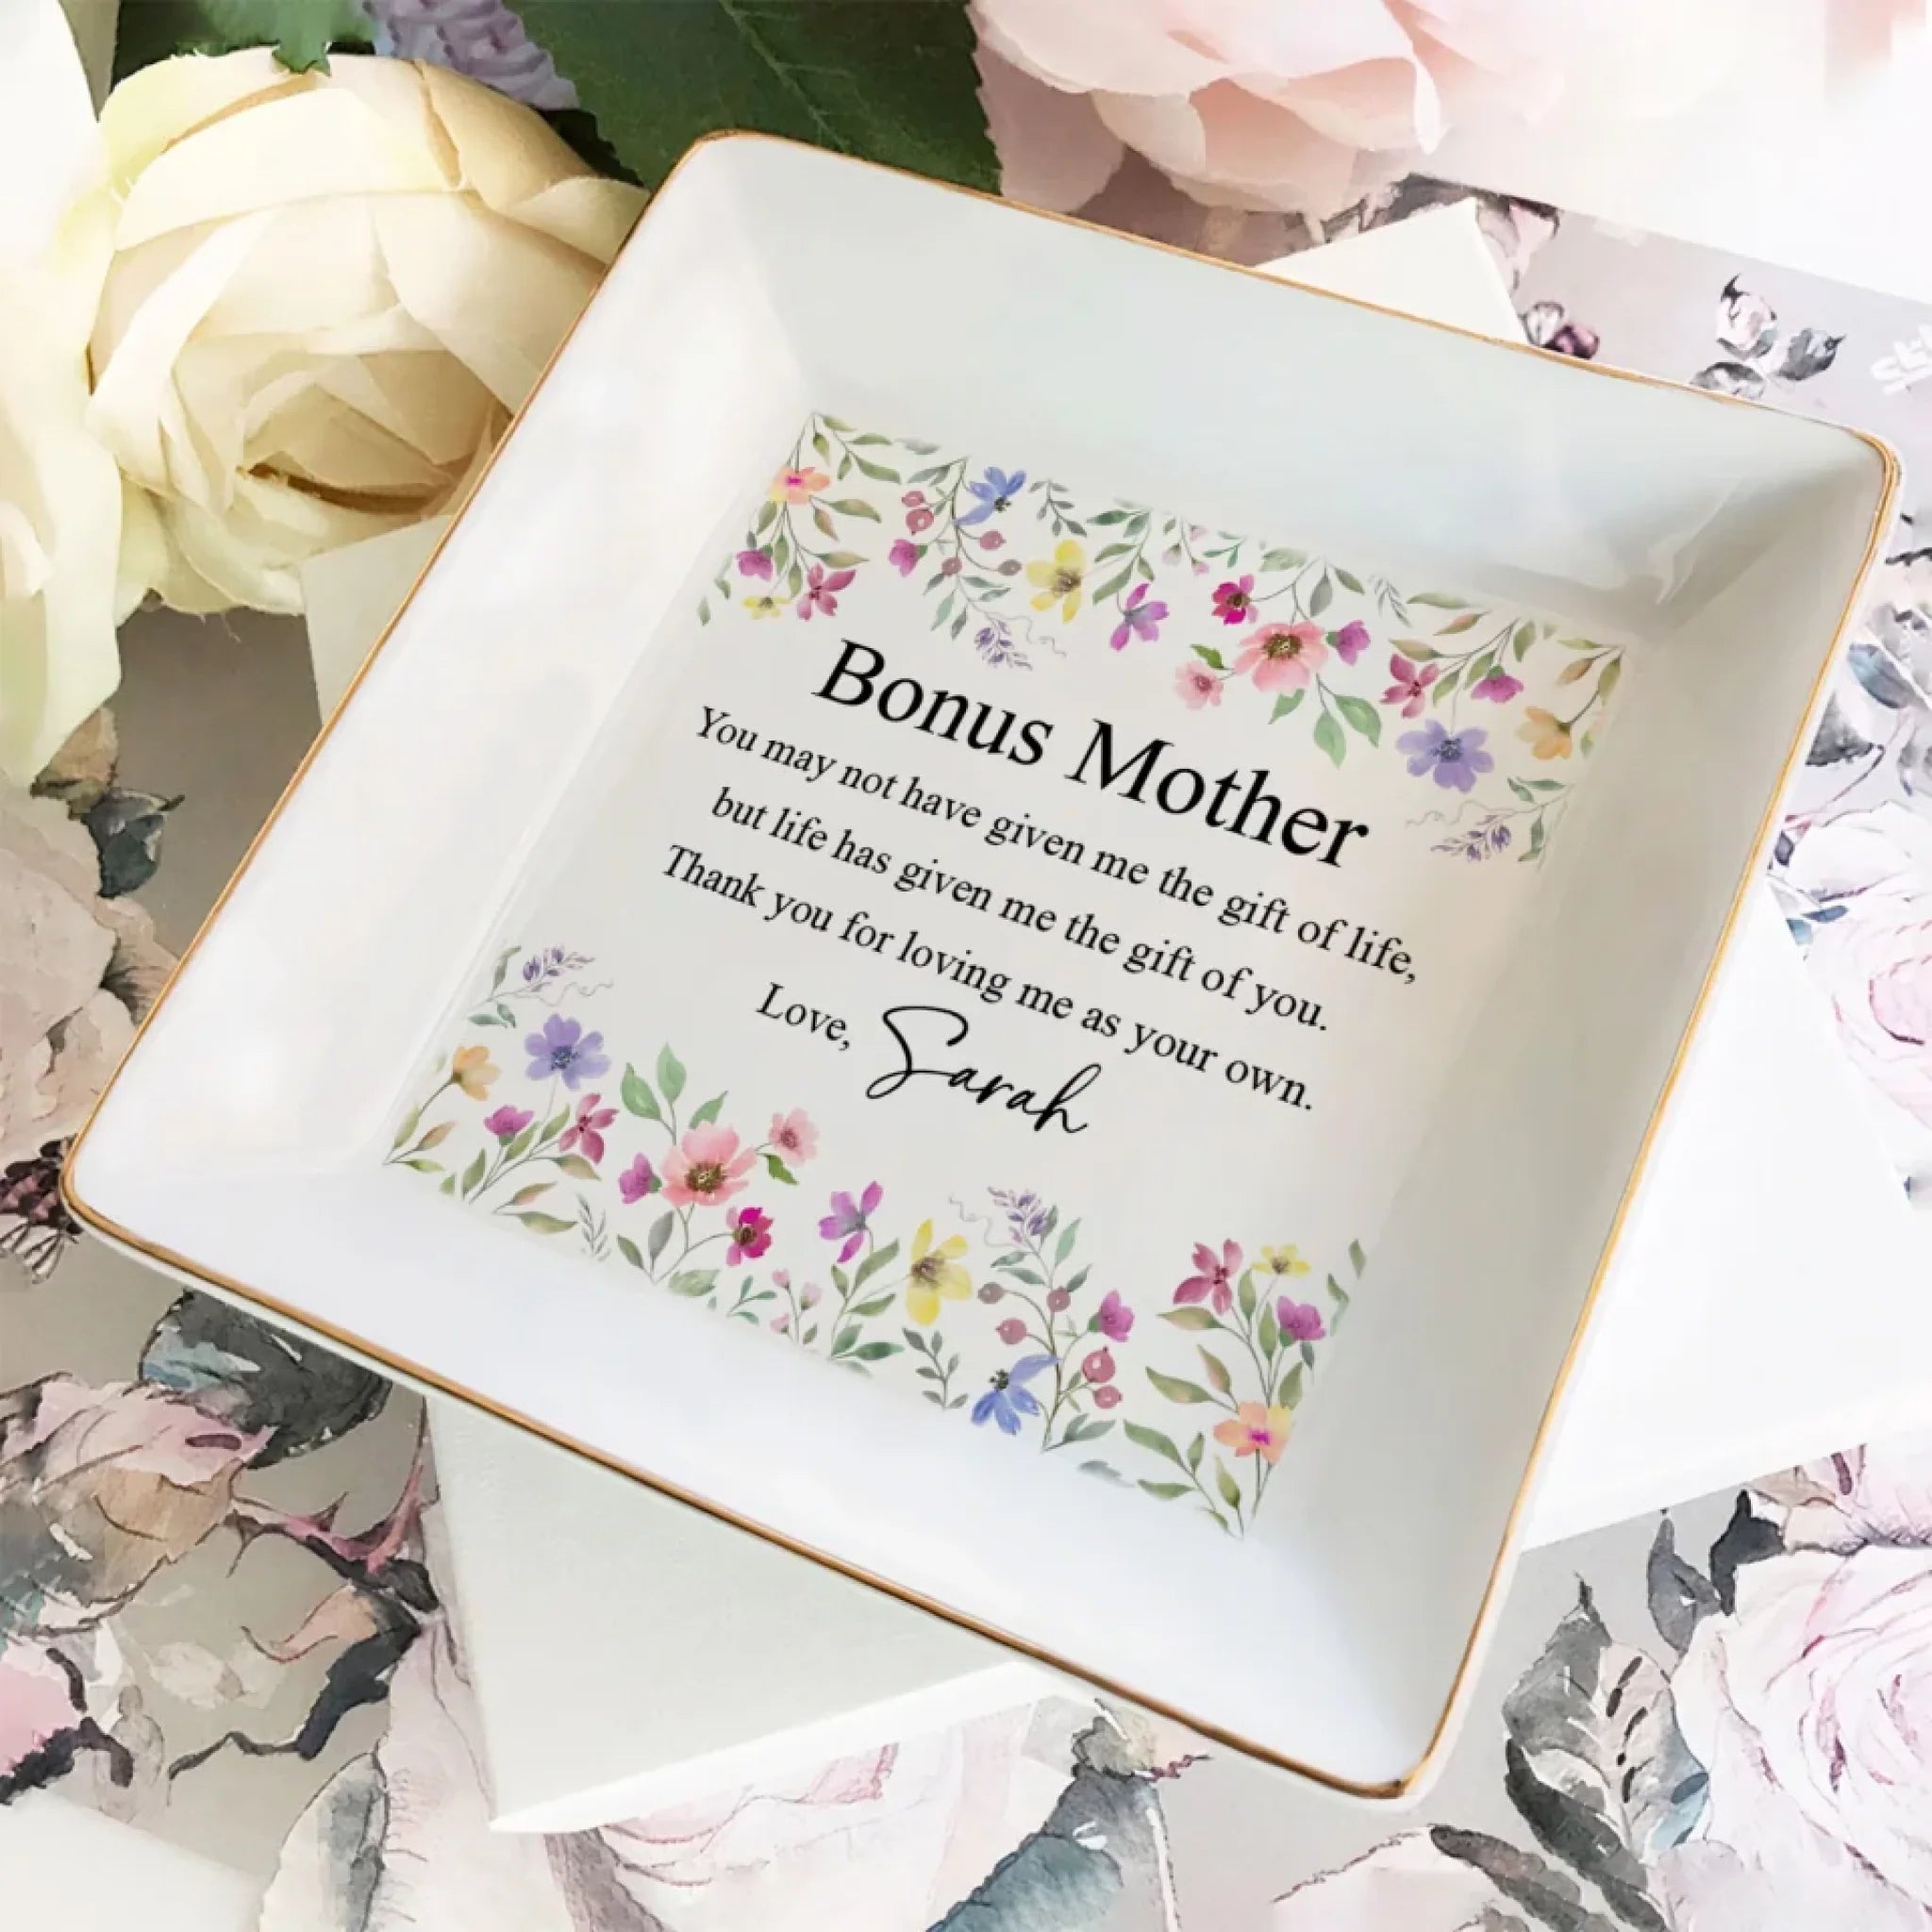 Bonus Mother
You may not have given me the gift of life,
but life has given me the gift of you.
Thank you for loving me as your own.
Love, Sarah